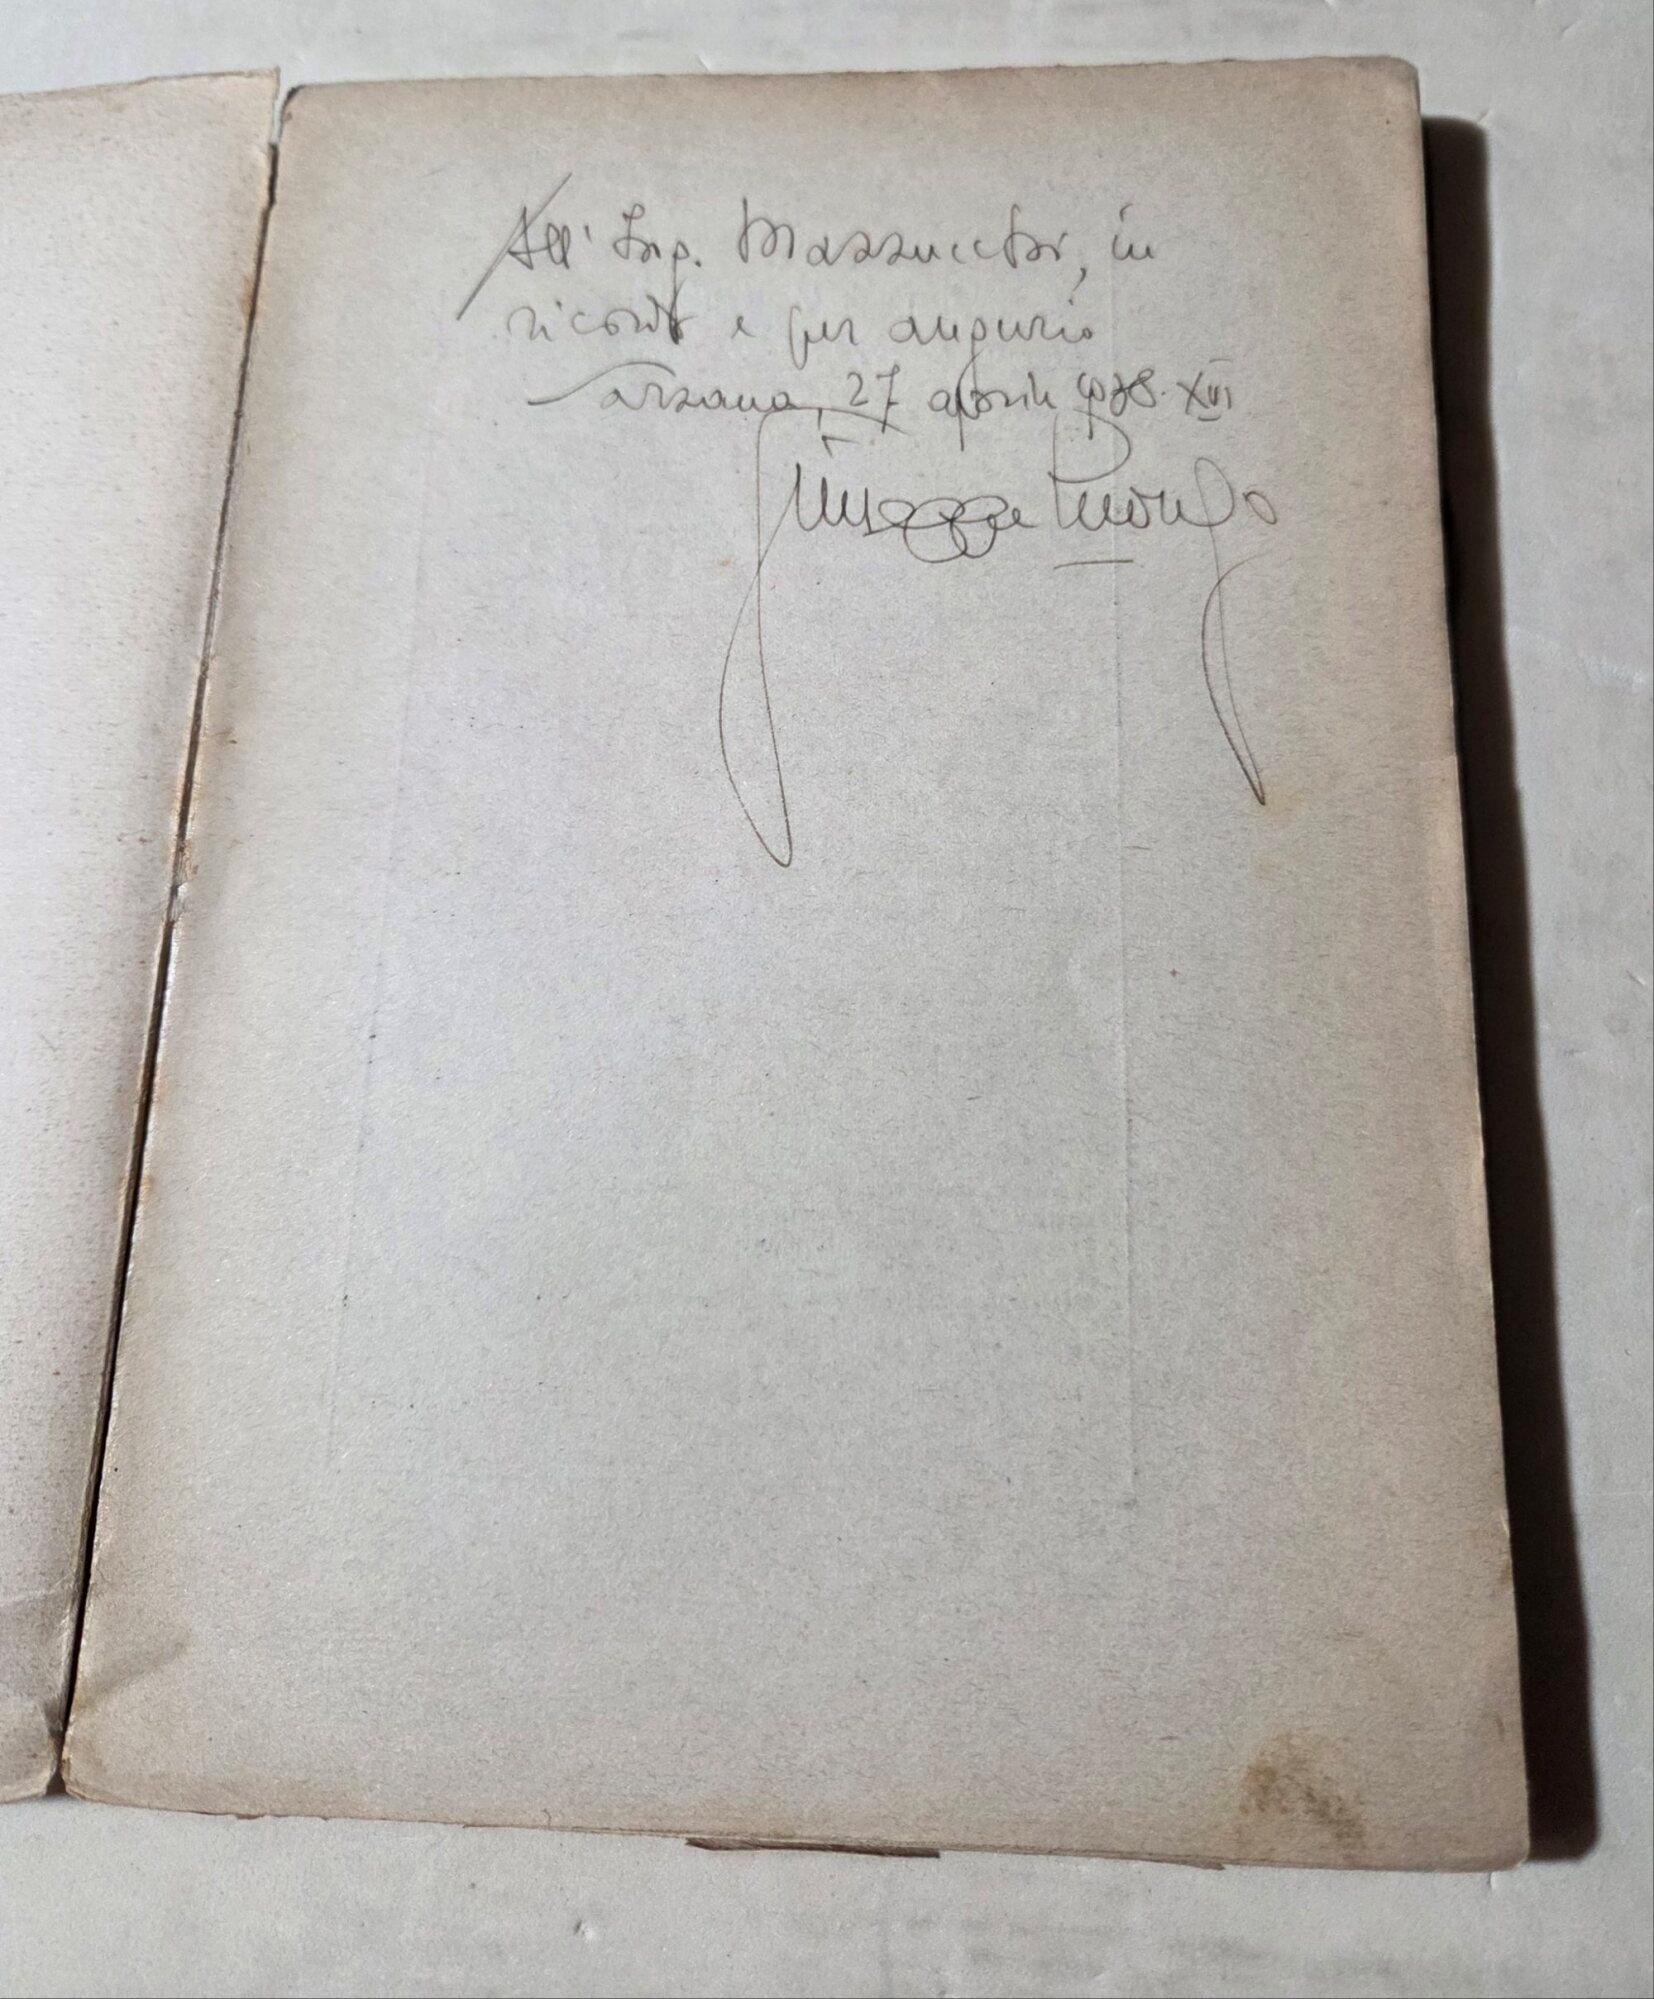 All' Ing. Mazzucchi, in
ricordo e per augurio
Sarzana, 27 aprile 1938. XVI
Giuseppe